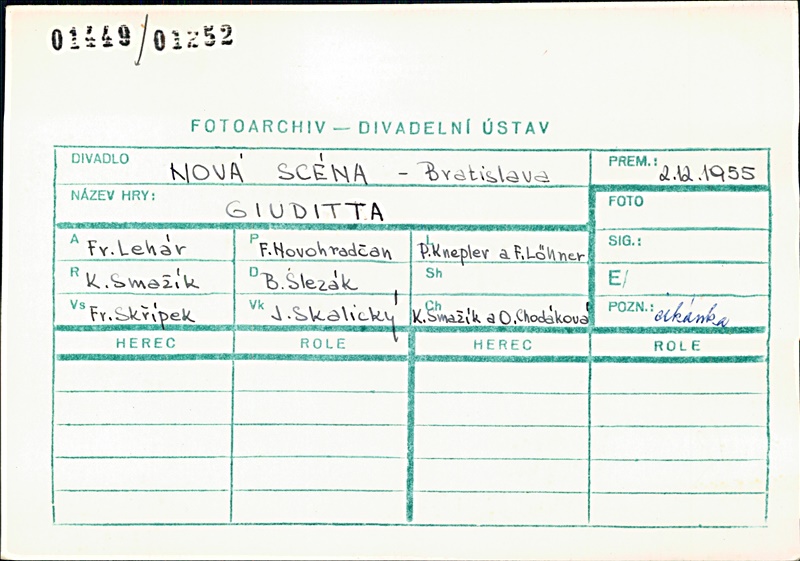 01449/01252
FOTOARCHIV — DIVADELNÍ ÚSTAV
DIVADLO NOVÁ SCÉNA - Bratislava PREM.: 2.12.1955
NÁZEV HRY: GIUDITTA FOTO
A Fr. Lehár P F. Novohradčan L P. Knepler a F. Löhner SIG.:
R K. Smažík D B. Šlezák Sh E/
Vs Fr. Skřípek Vk J. Skalický Ch K. Smažík a O. Chodáková POZN.: cikánka
HEREC ROLE HEREC ROLE